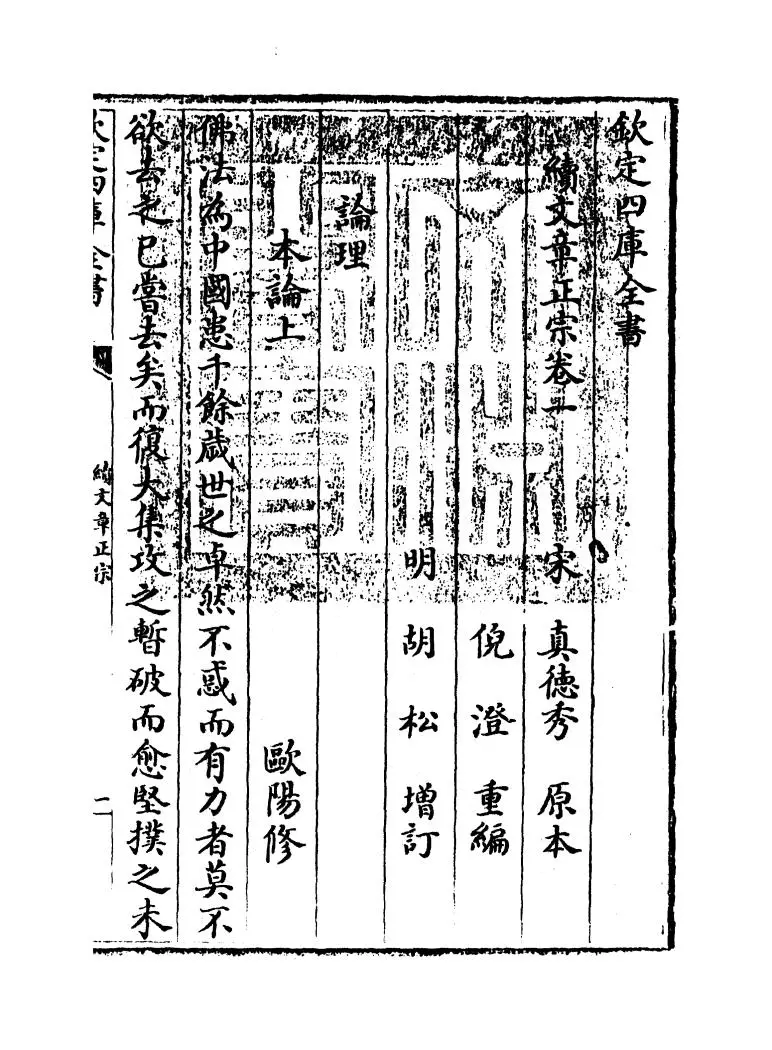 欽定四庫全書
續文章正宗卷一
宋 真德秀 原本
倪澄 重編
明 胡松 增訂
論理
本論上 歐陽修
佛法為中國患千餘歳世之卓然不惑而有力者莫不
欲去之已嘗去矣而復大集攻之暫破而愈堅撲之未
欽定四庫全書
續文章正宗
二